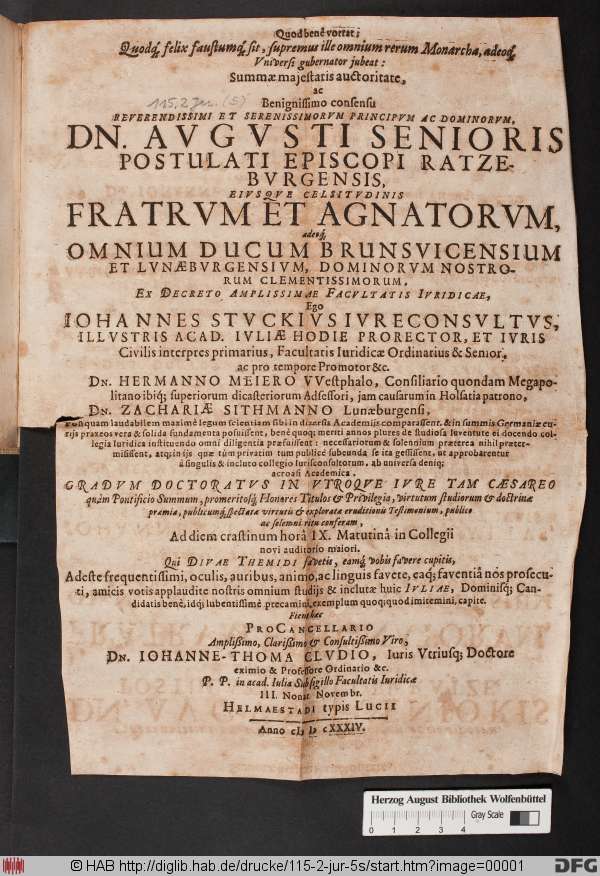 Quod benè vortat;
Quodq́; felix faustumq́; sit, supremus ille omnium rerum Monarcha, adeoq́;
Vniversi gubernator jubeat:
Summæ majestatis auctoritate,
ac
115, 2 Jur. (5)
Benignissimo consensu
REVERENDISSIMI ET SERENISSIMORVM PRINCIPVM AC DOMINORVM,
DN. AVGVSTI SENIORIS
POSTULATI EPISCOPI RATZE-
BVRGENSIS,
EIVSQVE CELSITVDINIS
FRATRVM ET AGNATORVM,
adeoq́;
OMNIUM DUCUM BRUNSVICENSIUM
ET LVNÆBVRGENSIVM, DOMINORVM NOSTRO-
RUM CLEMENTISSIMORUM,
EX DECRETO AMPLISSIMAE FACVLTATIS IVRIDICAE,
Ego
IOHANNES STVCKIVS IVRECONSVLTVS,
ILLVSTRIS ACAD. IVLIÆ HODIE PRORECTOR, ET IVRIS
Civilis interpres primarius, Facultatis Iuridicæ Ordinarius & Senior,
ac pro tempore Promotor &c.
DN. HERMANNO MEIERO VVestphalo, Consiliario quondam Megapo-
litano ibiq́; superiorum dicasteriorum Adsessori, jam causarum in Holsatia patrono,
DN. ZACHARIÆ SITHMANNO Lunæburgensi,
Postquam laudabilem maximè legum scientiam sibi in diversis Academijs comparassent, & in summis Germaniæ cu-
rijs praxeos vera & solida fundamenta posuissent, benè quoq; meriti annos plures de studiosa Iuventute ei docendo col-
legia Iuridica instituendo omni diligentia præfuissent: necessariorum & solennium præterea nihil præter-
misissent, atq; in ijs quæ tùm privatim tum publicè subeunda se ita gessissent, ut approbarentur
à singulis & incluto collegio Iurisconsultorum, ab universa deniq;
acroasi Academica,
GRADVM DOCTORATVS IN VTROQVE IVRE TAM CÆSAREO
quàm Pontificio Summum, promeritosq́; Honores Titulos & Privilegia, virtutum studiorum & doctrinæ
præmia, publicumq́; spectatæ virtutis & exploratæ eruditionis Testimonium, publico
ac solemni ritu conferam,
Ad diem crastinum horâ IX. Matutinâ in Collegii
novi auditorio maiori.
Qui DIVAE THEMIDI favetis, eamq́; vobis favere cupitis,
Adeste frequentissimi, oculis, auribus, animo, ac linguis favete, eaq́; faventiâ nos prosecu-
ti, amicis votis applaudite nostris omnium studijs & inclutæ huic IVLIAE, Dominisq́; Can-
didatis benè, idq́; lubentissimè precamini, exemplum quoq; quod imitemini, capite.
Fient hæc
PROCANCELLARIO
Amplißimo, Clarißimo & Consultißimo Viro,
DN. IOHANNE-THOMA CLVDIO, Iuris Vtriusq; Doctore
eximio & Professore Ordinario &c.
P. P. in acad. Iulia Sub sigillo Facultatis Iuridicæ
III. Nonar Novembr.
HELMAESTADI typis LUCII
Anno cIↃ IↃ cXXXIV.
Herzog August Bibliothek Wolfenbüttel
Gray Scale
0 1 2 3 4
© HAB http://diglib.hab.de/drucke/115-2-jur-5s/start.htm?image=00001
DFG